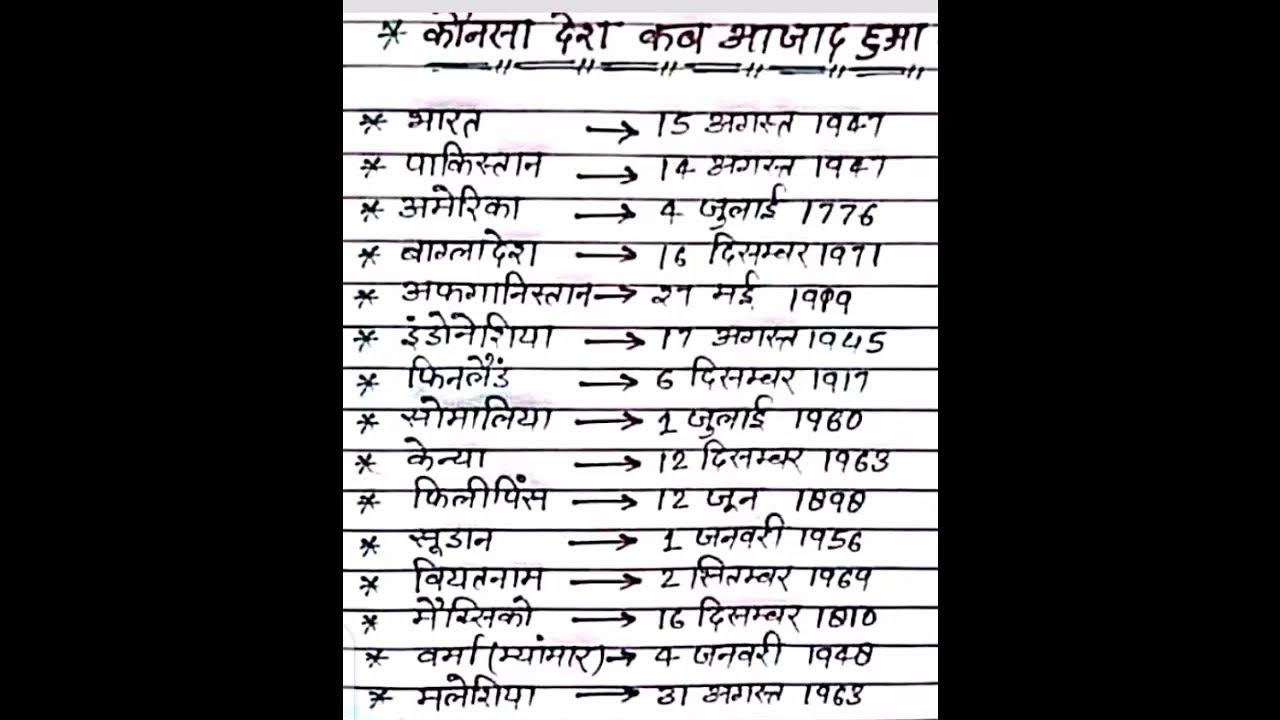 * कौनसा देश कब आजाद हुआ
* भारत → 15 अगस्त 1947
* पाकिस्तान → 14 अगस्त 1947
* अमेरिका → 4 जुलाई 1776
* बाग्लादेश → 16 दिसम्बर 1971
* अफगानिस्तान → 27 मई 1919
* इंडोनेशिया → 17 अगस्त 1945
* फिनलैंड → 6 दिसम्बर 1917
* सोमालिया → 1 जुलाई 1960
* केन्या → 12 दिसम्बर 1963
* फिलीपिंस → 12 जून 1898
* सूडान → 1 जनवरी 1956
* वियतनाम → 2 सितम्बर 1969
* मैक्सिको → 16 दिसम्बर 1810
* वर्मा (म्यांमार) → 4 जनवरी 1948
* मलेशिया → 31 अगस्त 1963